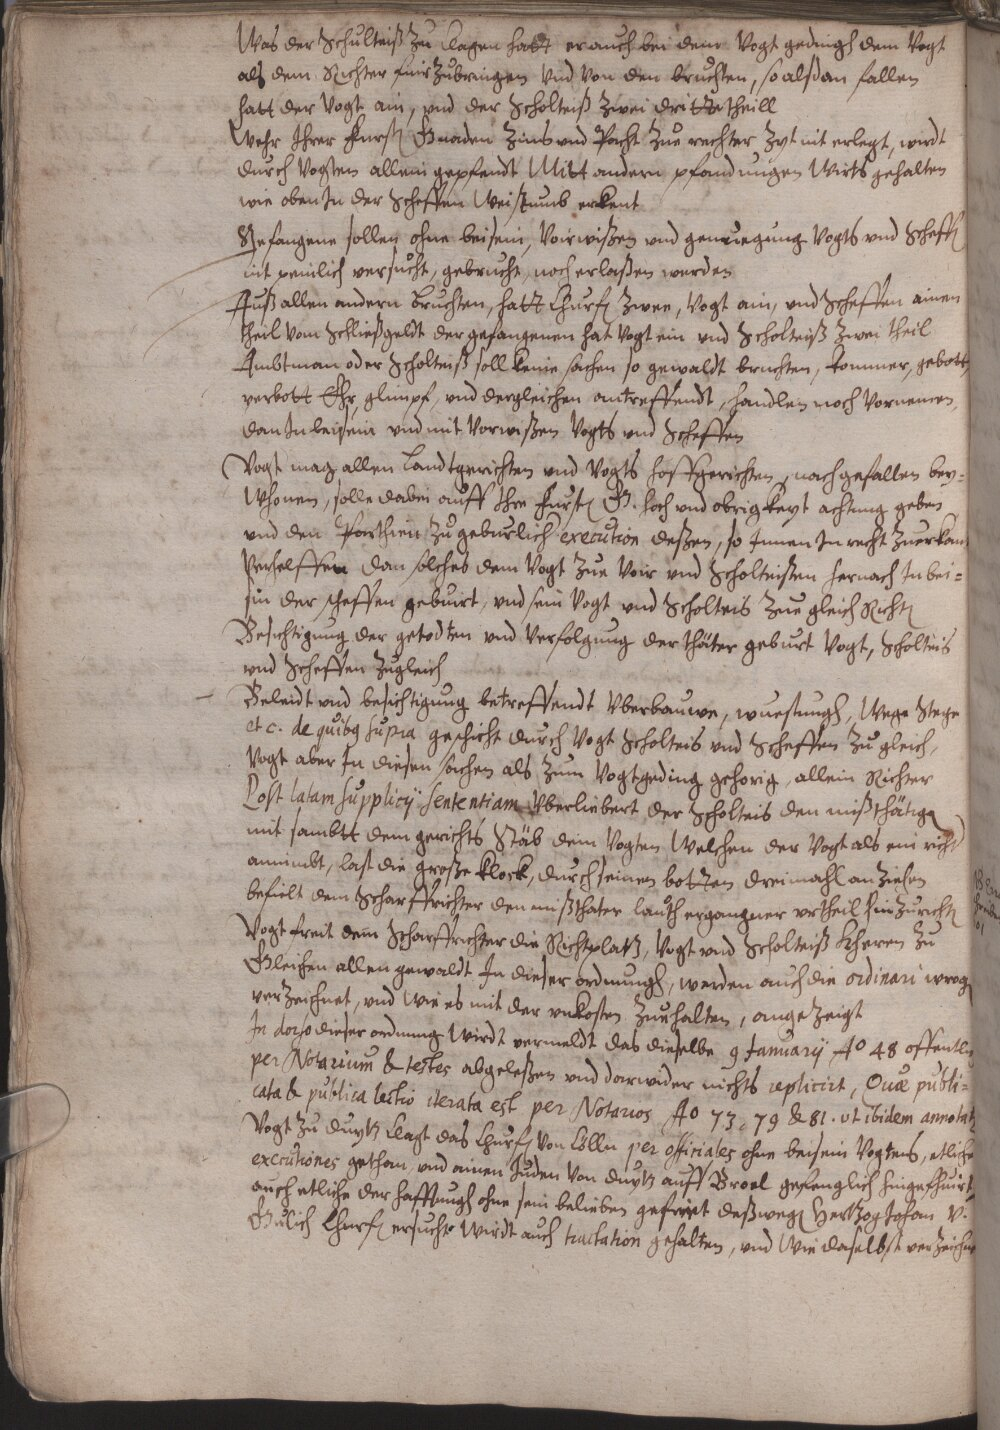 Was der Schulteiß zu klagen hatt er auch bei dem Vogt gedingh dem Vogt
als dem Richter fuir zubringen Vnd von den bruchten, so alßdan fallen
hatt der Vogt ain, vnd der Scholteiß zwei drittetheill
Wehr Ihrer Furst Gnaden Zins vnd Pacht Zue rechter Zyt nit erlegt, wirdt
durch Vogten allein gepfendt Mitt andern pfandungen Wirts gehalten
wie oben In der Scheffen Weistumb erkent
Gefangene sollen ohne beisein, Voirwißen vnd genuegung Vogts vnd Scheff
nit peinlich versucht, gebrucht, noch erlaßen werden
Auß allen andern bruchten, hatt Churf zwee, Vogt ain, vnd Scheffen ainen
theil vom Schließgeldt der gefangenen hat Vogt ein vnd Scholteiß zwei theil
Ambtman oder Scholteiß soll keine sachen so gewaldt bruchten, kommer, gebott,
verbott Ehr, glimpf, vnd dergleichen antreffendt, handlen noch Vornemen,
dan In beisein vnd mit Vorwißen Vogts vnd Scheffen
Vogt mag allen Landtgerichten vnd Vogts hoffgerichten, nach gefallen bey=
Whonen, solle dabei auff Ihre Furst G. hoch vnd obrigkeyt achtung geben
vnd den Parthien zu geburlich execution deßen, so Innen In recht zuerkan
Verhelffen dan solches dem Vogt Zue Voir vnd Scholteißen hernach In bei=
sin der scheffen geburt, vnd sein Vogt vnd Scholteis Zue gleich Richt
Besichtigung der getodten vnd Verfolgung der thäter geburt Vogt, Scholteis
vnd Scheffen zugleich
Beleidt vnd besichtigung betreffendt Vberbauwe, wuestungh, Wege Stege
et c. de quibg supra geschicht durch Vogt Scholteis vnd Scheffen zu gleich,
Vogt aber In diesen sachen als zum Vogtgeding gehorig, allein Richter
Post latam supplicij sententiam Vberliebert der Scholteis den mißthätige
mit sambtt dem gerichts Stäb dem Vogten Welchen der Vogt als ein richt
annimbt, last die große klock, durch seinen botten dreimahl an ziehen
befielt dem Scharffrichter den mißthater lauth ergangner vrtheil hin zuricht
Vogt freit dem Scharffrichter die Richtplatz, Vogt vnd Scholteiß kheren zu
Gleichen allen gewaldt In dieser ordnungh, werden auch die ordinari wrog
verzeichnet, vnd wie es mit der vnkosten Zuehalten, angezeigt
In dorso dieser ordnung Wirdt vermeldt das dieselbe 9 Januarij Ao 48 offentlich
per Notarium & testes abgeleßen vnd darwider nichts replicirt, Quæ publi-
cata & publica lectio iterata est per Notarios Ao 73, 79 & 81. vt ibidem annotat
Vogt zu duytz klagt das Churf von Cölln per officiales ohne beisein Vogtens, etliche
executiones gethan, vnd ainen Juden von duytz auff Broel gefenglich hingefhuirt
auch etliche der hafftungh ohne sein belieben gefriet deßweg Hertzog Johan v.
Gulich Churf ersucht Wirdt auch tractation gehalten, vnd Wie daselbst verzeichn